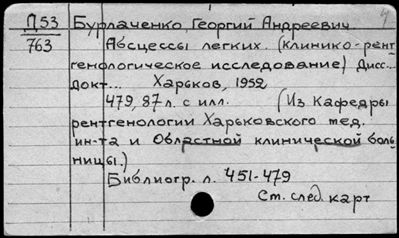 П53 Бурлаченко, Георгий Андреевич 4
763 Абсцессы легких. (клинико-рент
генологическое исследование) Дисс...
докт... Харьков, 1952
479, 87 л. с илл. (Из Кафедры
рентгенологии Харьковского мед.
ин-та и Областной клинической боль
ницы.)
Библиогр. л. 451-479
См. след карт